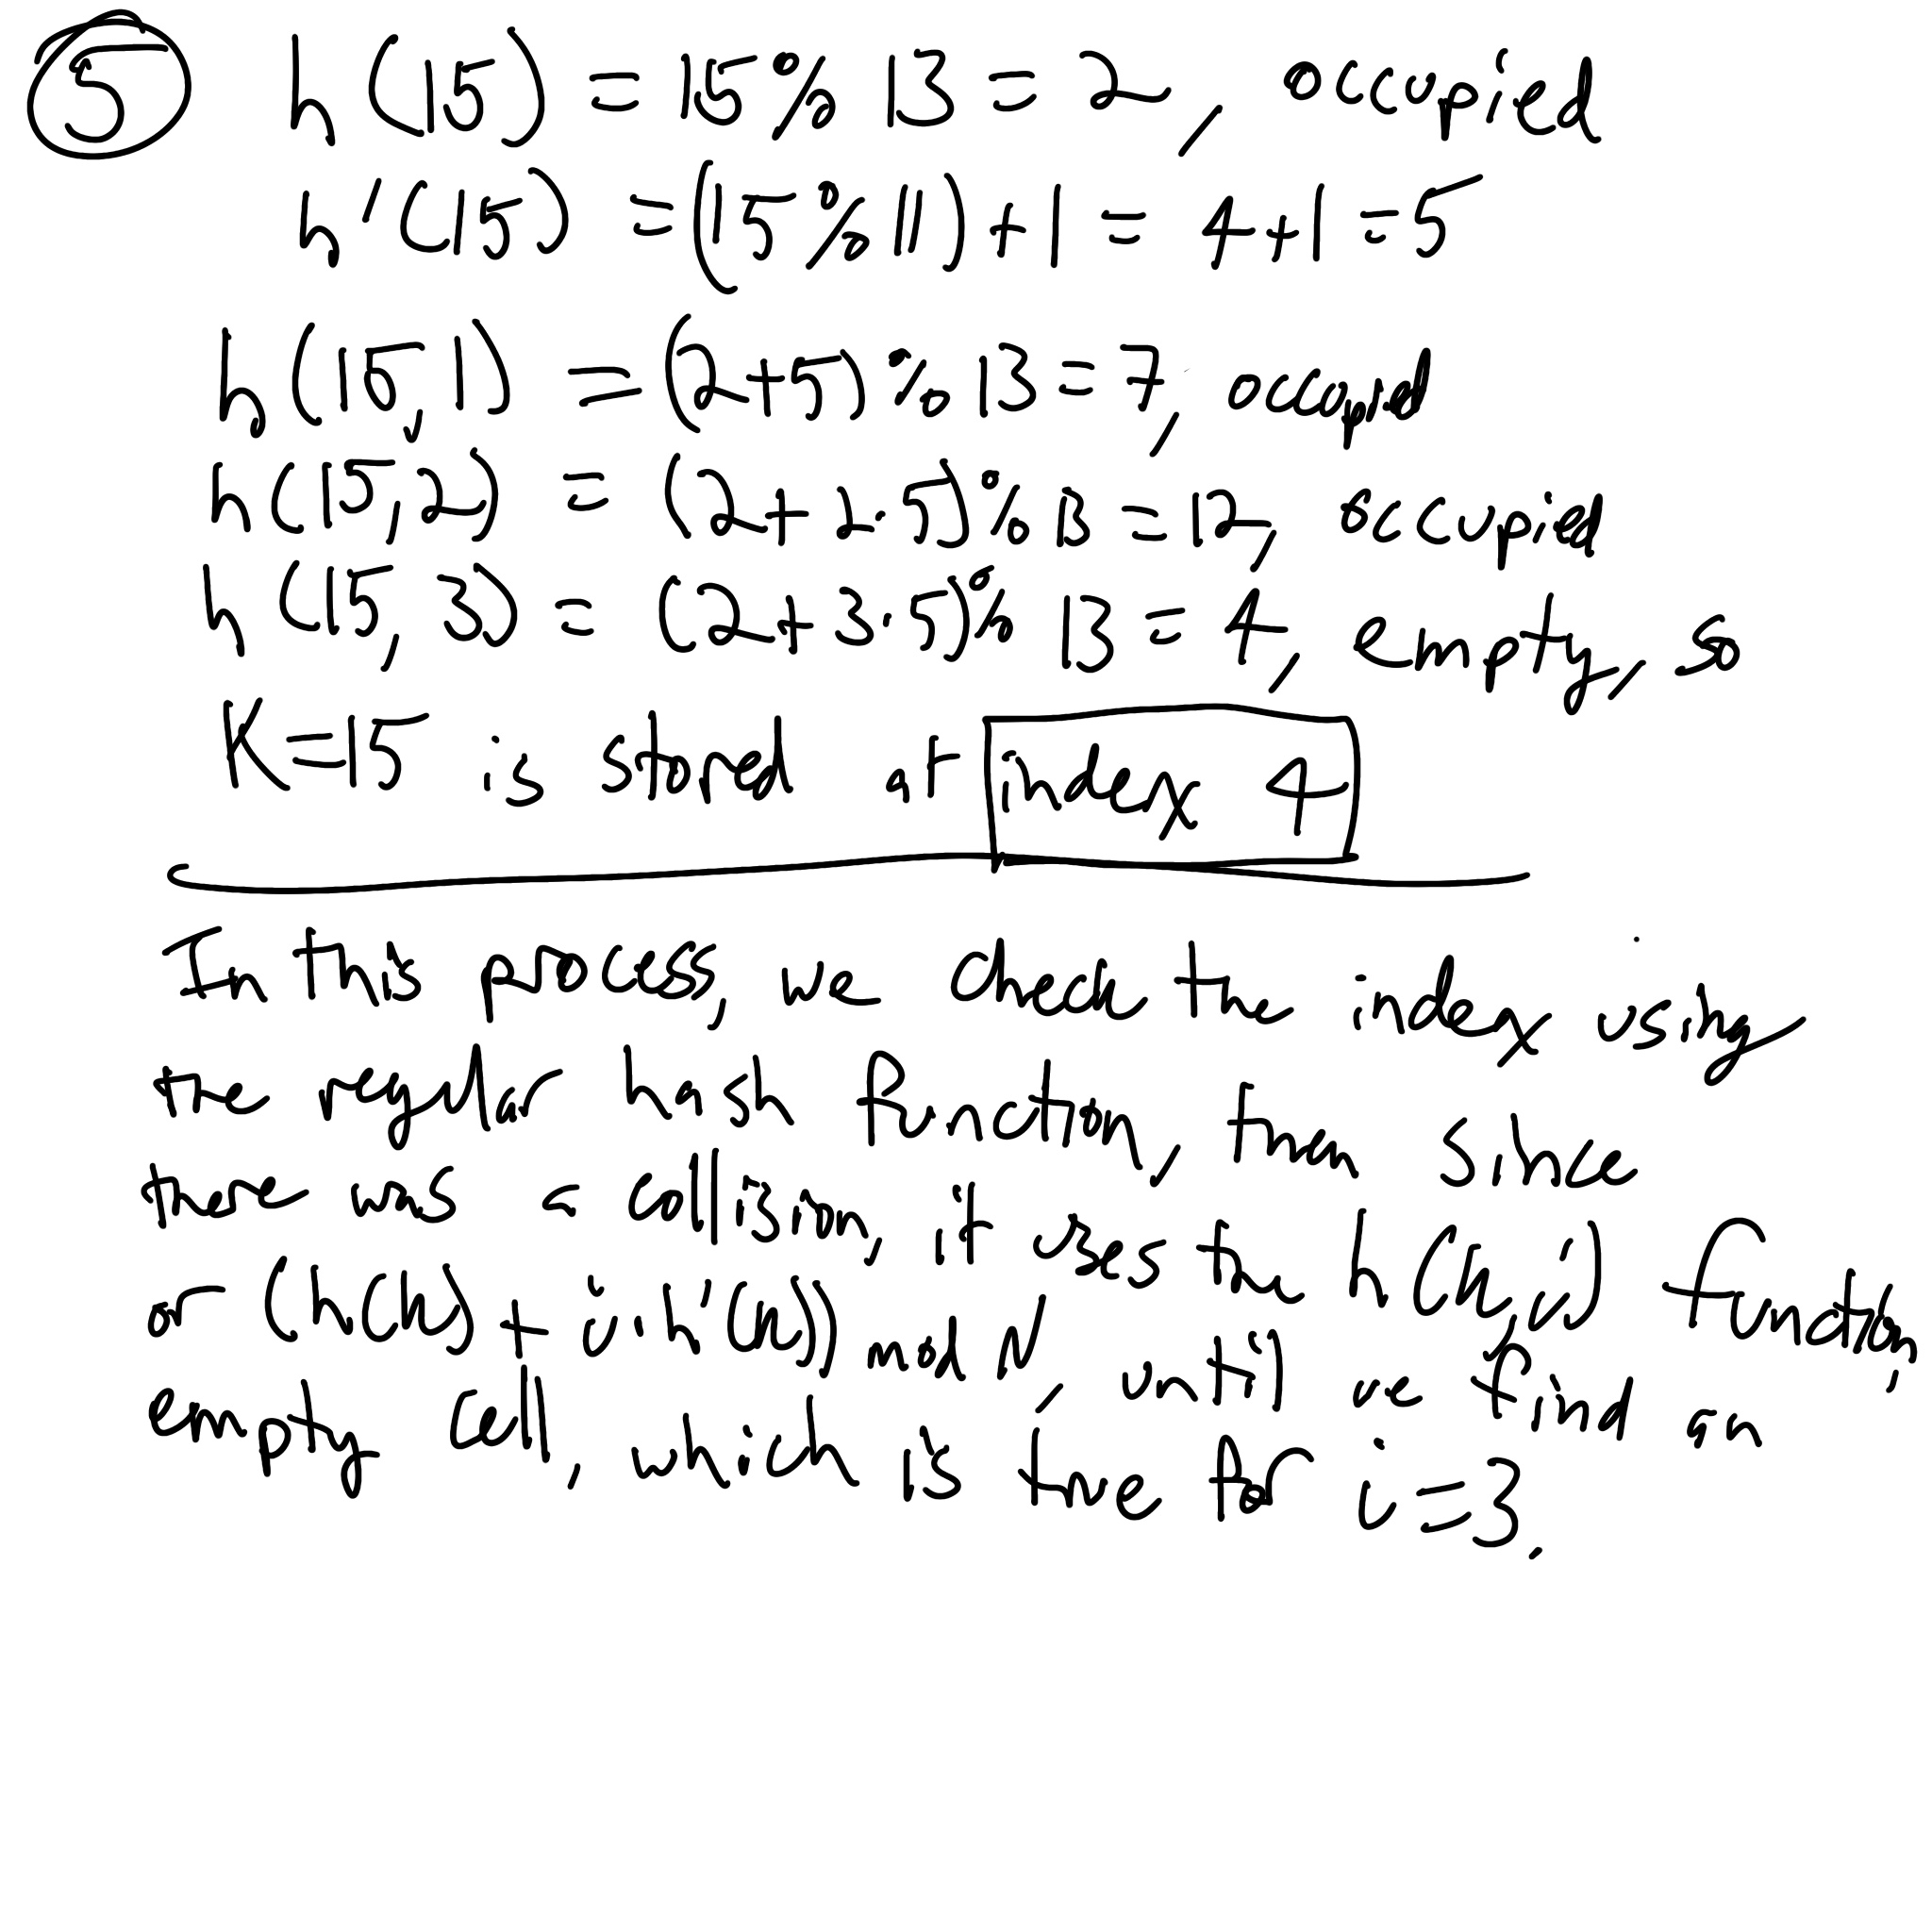 5 h(15) = 15% 13 = 2, occupied
h'(15) = (15%11)+1 = 4+1=5
h(15,1) = (2+5)% 13=7, occupied
h(15,2) = (2+2·5)% 13=12, occupied
h(15,3) = (2+3·5)% 13=4, empty, so
K=15 is stored at index 4
In this process, we check the index using
the regular hash function, then since
there was a collision, it uses the h(k,i) function,
or (h(k)+i·h'(k)) mod N, until we find an
empty cell, which is true for i=3.